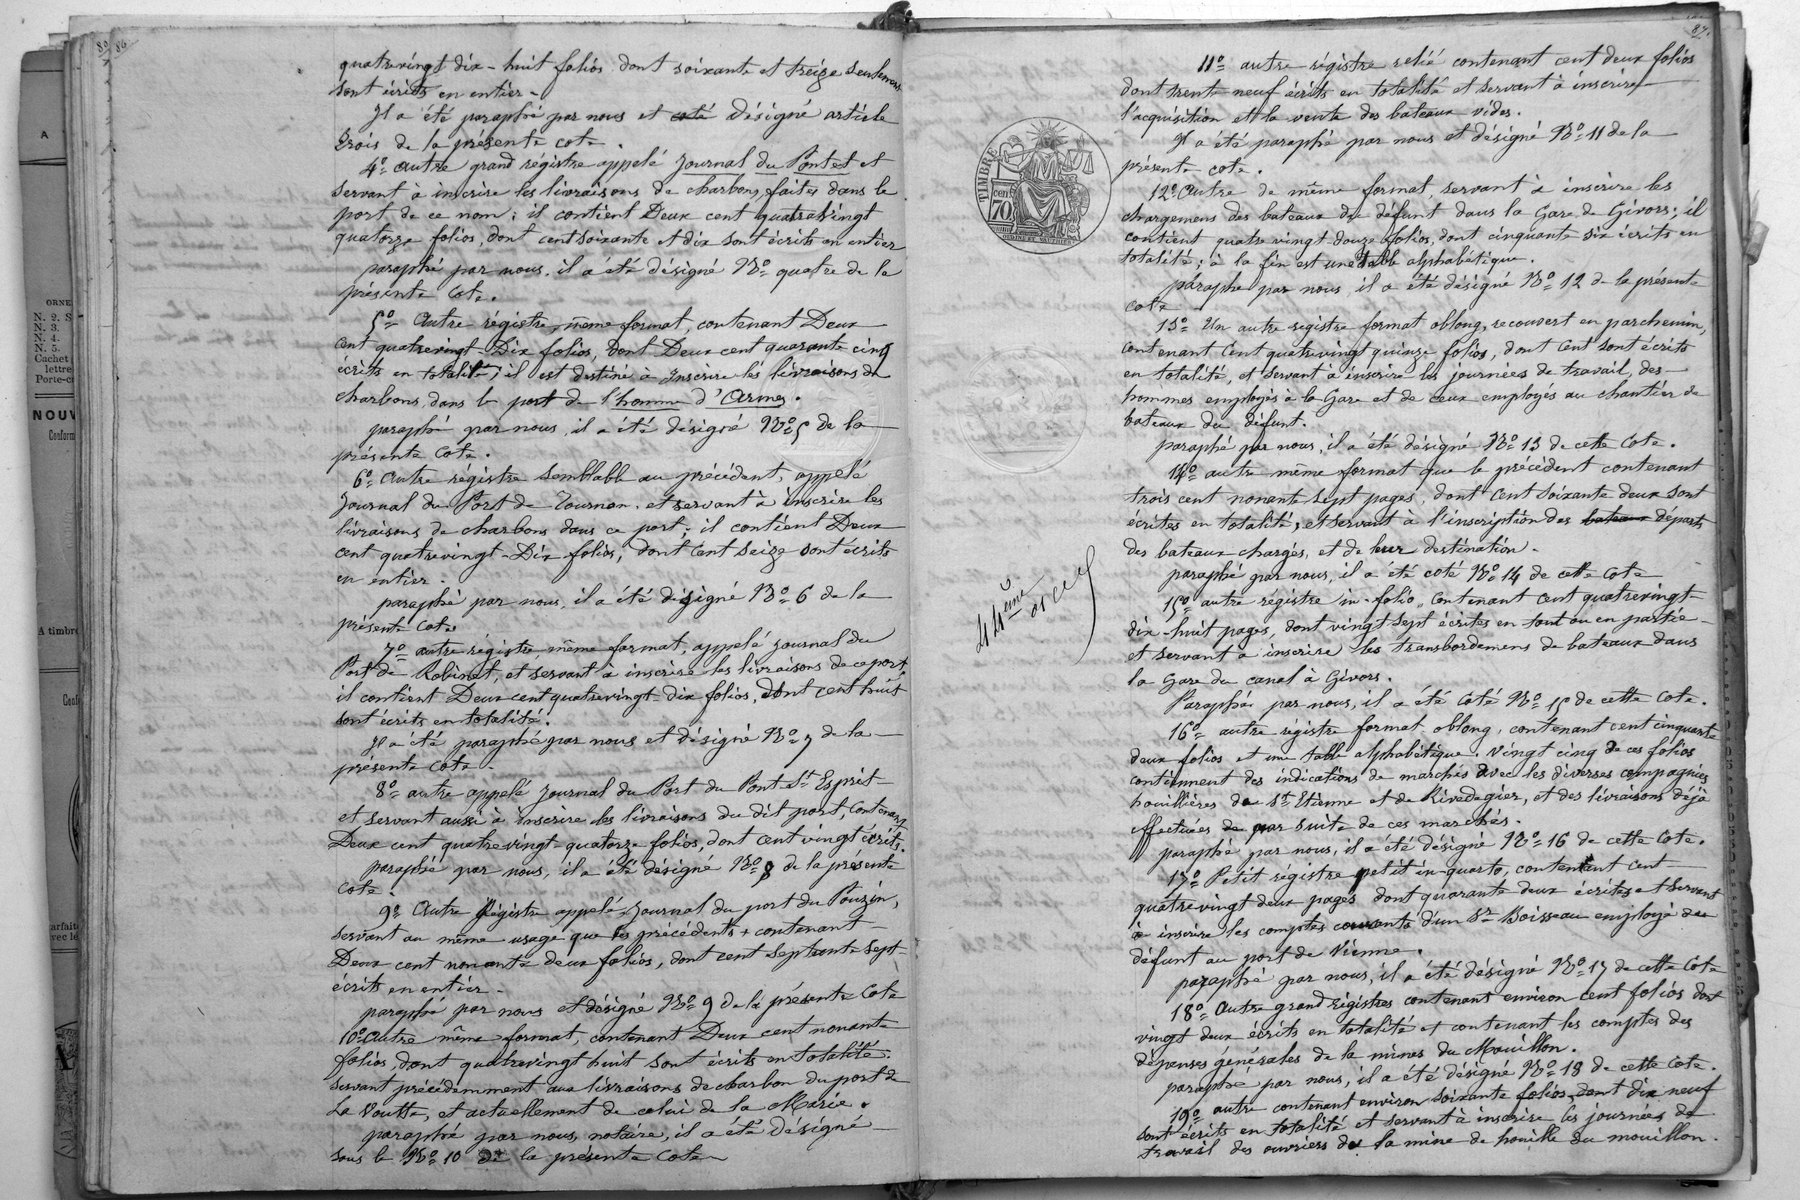 80 86
quatrevingt dix-huit folios dont soixante et treize seulement
sont écrits en entier.
Il a été paraphé par nous et coté désigné article
trois de la présente cote.
4o autre grand régistre appelé Journal du Pontet et
servant à inscrire les livraisons de charbons faites dans le
port de ce nom; il contient Deux cent quatrevingt
quatorze folios, dont cent soixante et dix sont écrits en entier
paraphé par nous, il a été désigné No quatre de la
présente Cote.
5o Autre régistre, même format, contenant Deux
cent quatrevingt-Dix folios, dont Deux cent quarante cinq
écrits en totalité; il est destiné à Inscrire les livraisons de
charbons, dans le port de l'homme d'Armes.
paraphé par nous, il a été désigné No 5 de la
présente Cote.
6o Autre régistre semblable au précédent, appelé
Journal du Port de Tournon, et servant à inscrire les
livraisons de charbons dans ce port; il contient Deux
cent quatrevingt-Dix folios, dont Cent Seize sont écrits
en entier.
paraphé par nous, il a été désigné No 6 de la
présente Cote.
7o autre régistre même format, appelé Journal du
Port de Robinet, et servant à inscrire les livraisons de ce port,
il contient Deux cent quatrevingt-dix folios, dont cent huit
sont écrits en totalité.
Il a été paraphé par nous et désigné No 7 de la
présente Cote.
8o autre appelé Journal du Port du Pont St Esprit
et servant aussi à inscrire les livraisons du dit port, Contenant
Deux cent quatrevingt-quatorze folios, dont cent vingt écrits.
paraphé par nous, il a été désigné No 8 de la présente
Cote.
9o Autre Régistre appelé Journal du port du Pouzin,
servant au même usage que les précédents & contenant
Deux cent nonante deux folios, dont cent septante sept
écrits en entier.
paraphé par nous et désigné No 9 de la présente Cote
10o Autre même format, contenant Deux cent nonante
folios, dont quatrevingt huit sont écrits en totalité.
Servant précédemment aux livraisons de charbon du port de
La Voutte, et actuellement de celui de la Marie.
paraphé par nous, notaire, il a été désigné
sous le No 10 de la présente Cote
87.
11o autre régistre relié contenant cent deux folios
dont trente neuf écrits en totalité et servant à inscrire
l'acquisition et la vente des bateaux vides.
Il a été paraphé par nous et désigné No 11 de la
présente cote.
TIMBRE
cent
70
12o Autre de même format servant à inscrire les
chargemens des bateaux du défunt dans la Gare de Givors; il
contient quatre vingt douze folios, dont cinquante six écrits en
totalité; à la fin est une table alphabétique.
paraphé par nous, il a été désigné No 12 de la présente
cote
13o Un autre régistre format oblong, recouvert en parchemin,
contenant Cent quatrevingt quinze folios, dont Cent sont écrits
en totalité, et servant à inscrire les journées de travail, des
hommes employés à la Gare et de ceux employés au chantier de
bateaux du défunt.
paraphé par nous, il a été désigné No 13 de cette Cote.
14o autre même format que le précédent contenant
trois cent nonante sept pages, dont Cent Soixante deux sont
écrites en totalité, et servant à l'inscription des bateaux départs
des bateaux chargés, et de leur destination.
44ème
paraphé par nous, il a été coté No 14 de cette Cote
15o autre régistre in-folio, contenant Cent quatrevingt
dix-huit pages, dont vingt sept écrites en tout ou en partie
et servant à inscrire les transbordemens de bateaux dans
la Gare du canal à Givors.
Paraphé par nous, il a été Coté No 15 de cette Cote.
16o autre régistre format oblong, contenant cent cinquante
deux folios et une table alphabétique. vingt cinq de ces folios
contiennent des indications de marchés avec les diverses compagnies
houillières de St Etienne et de Rivedegier, et des livraisons déjà
effectuées de par suite de ces marchés.
paraphé par nous, il a été désigné No 16 de cette Cote.
17o Petit régistre petit in-quarto, contenant cent
quatrevingt deux pages dont quarante deux écrites et servant
à inscrire les comptes courants d'un Sr Boisseau employé du
défunt au port de Vienne.
paraphé par nous, il a été désigné No 17 de cette Cote
18o Autre grand régistres contenant environ cent folios dont
vingt deux écrits en totalité et contenant les comptes des
dépenses générales de la mines du Mouillon.
paraphé par nous, il a été désigné No 18 de cette Cote.
19o autre contenant environ soixante folios, dont dix neuf
sont écrits en totalité et servant à inscrire les journées de
travail des ouvriers de la mine de houille du mouillon.
A
ORNE
N. 2. S
N. 3.
N. 4.
N. 5.
Cachet
lettre
Porte-c
NOUV
Conform
A timbre